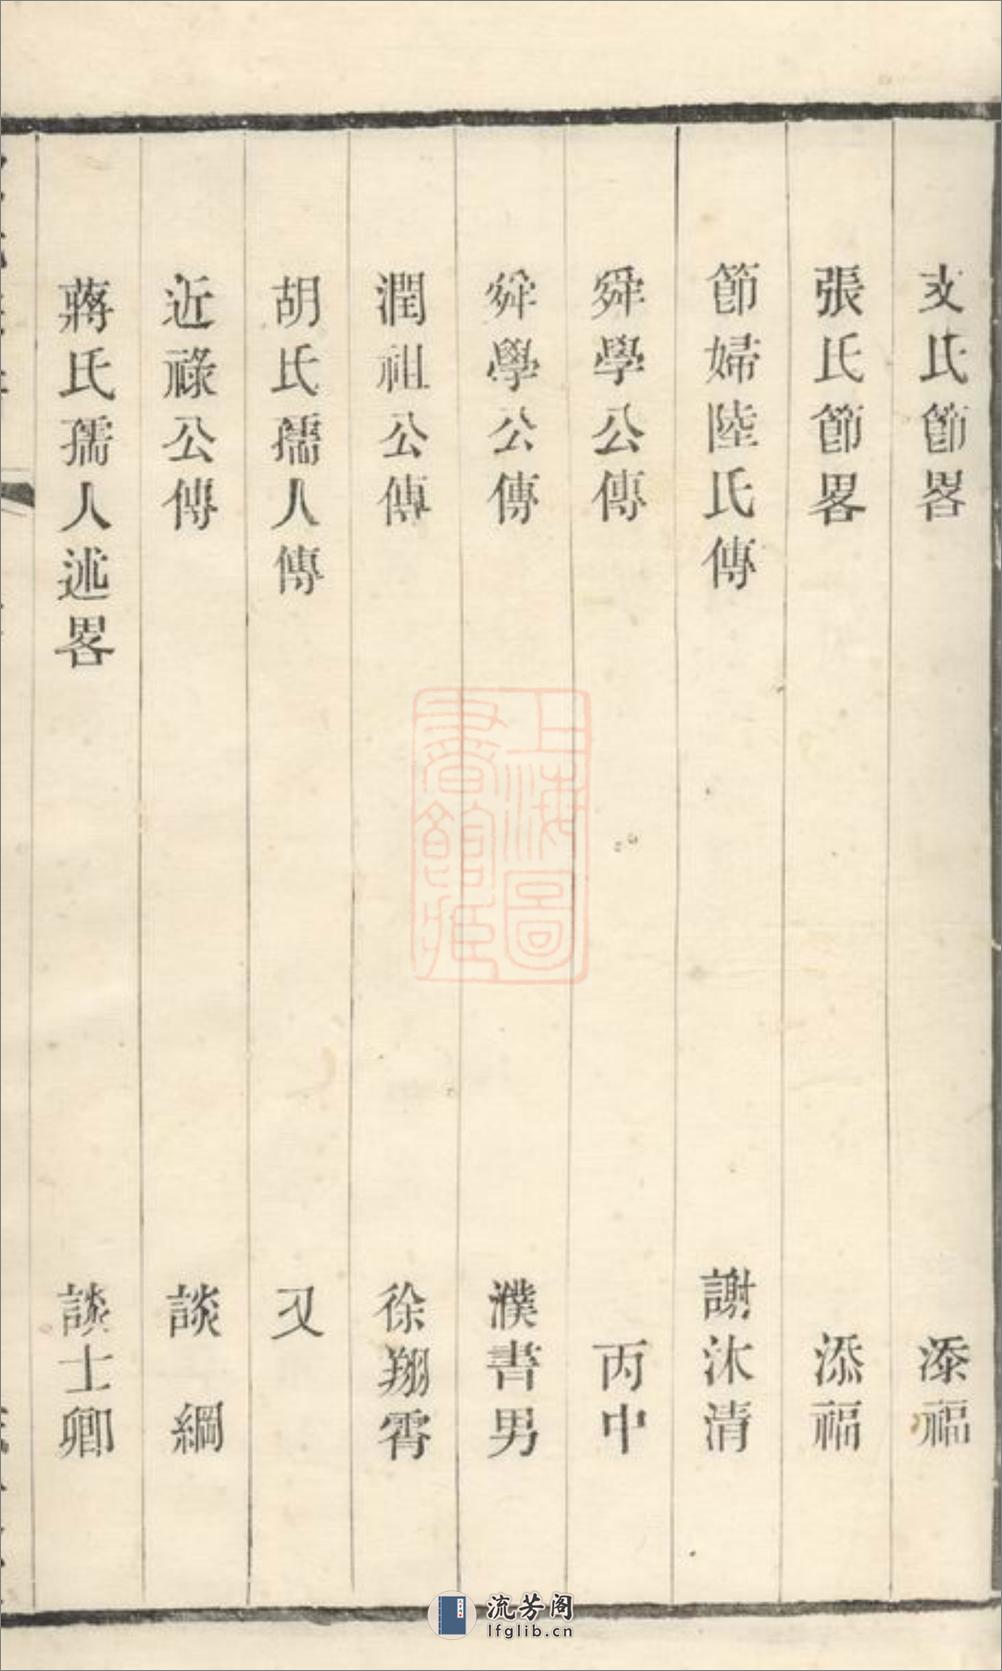 文氏節畧 添福
張氏節畧 添福
節婦陸氏傳 謝沐清
舜學公傳 丙中
舜學公傳 濮書男
潤祖公傳 徐翔霄
胡氏孺人傳 又
近祿公傳 談綱
蔣氏孺人述畧 談士卿
上海圖
書館藏
流芳阁
lfglib.cn